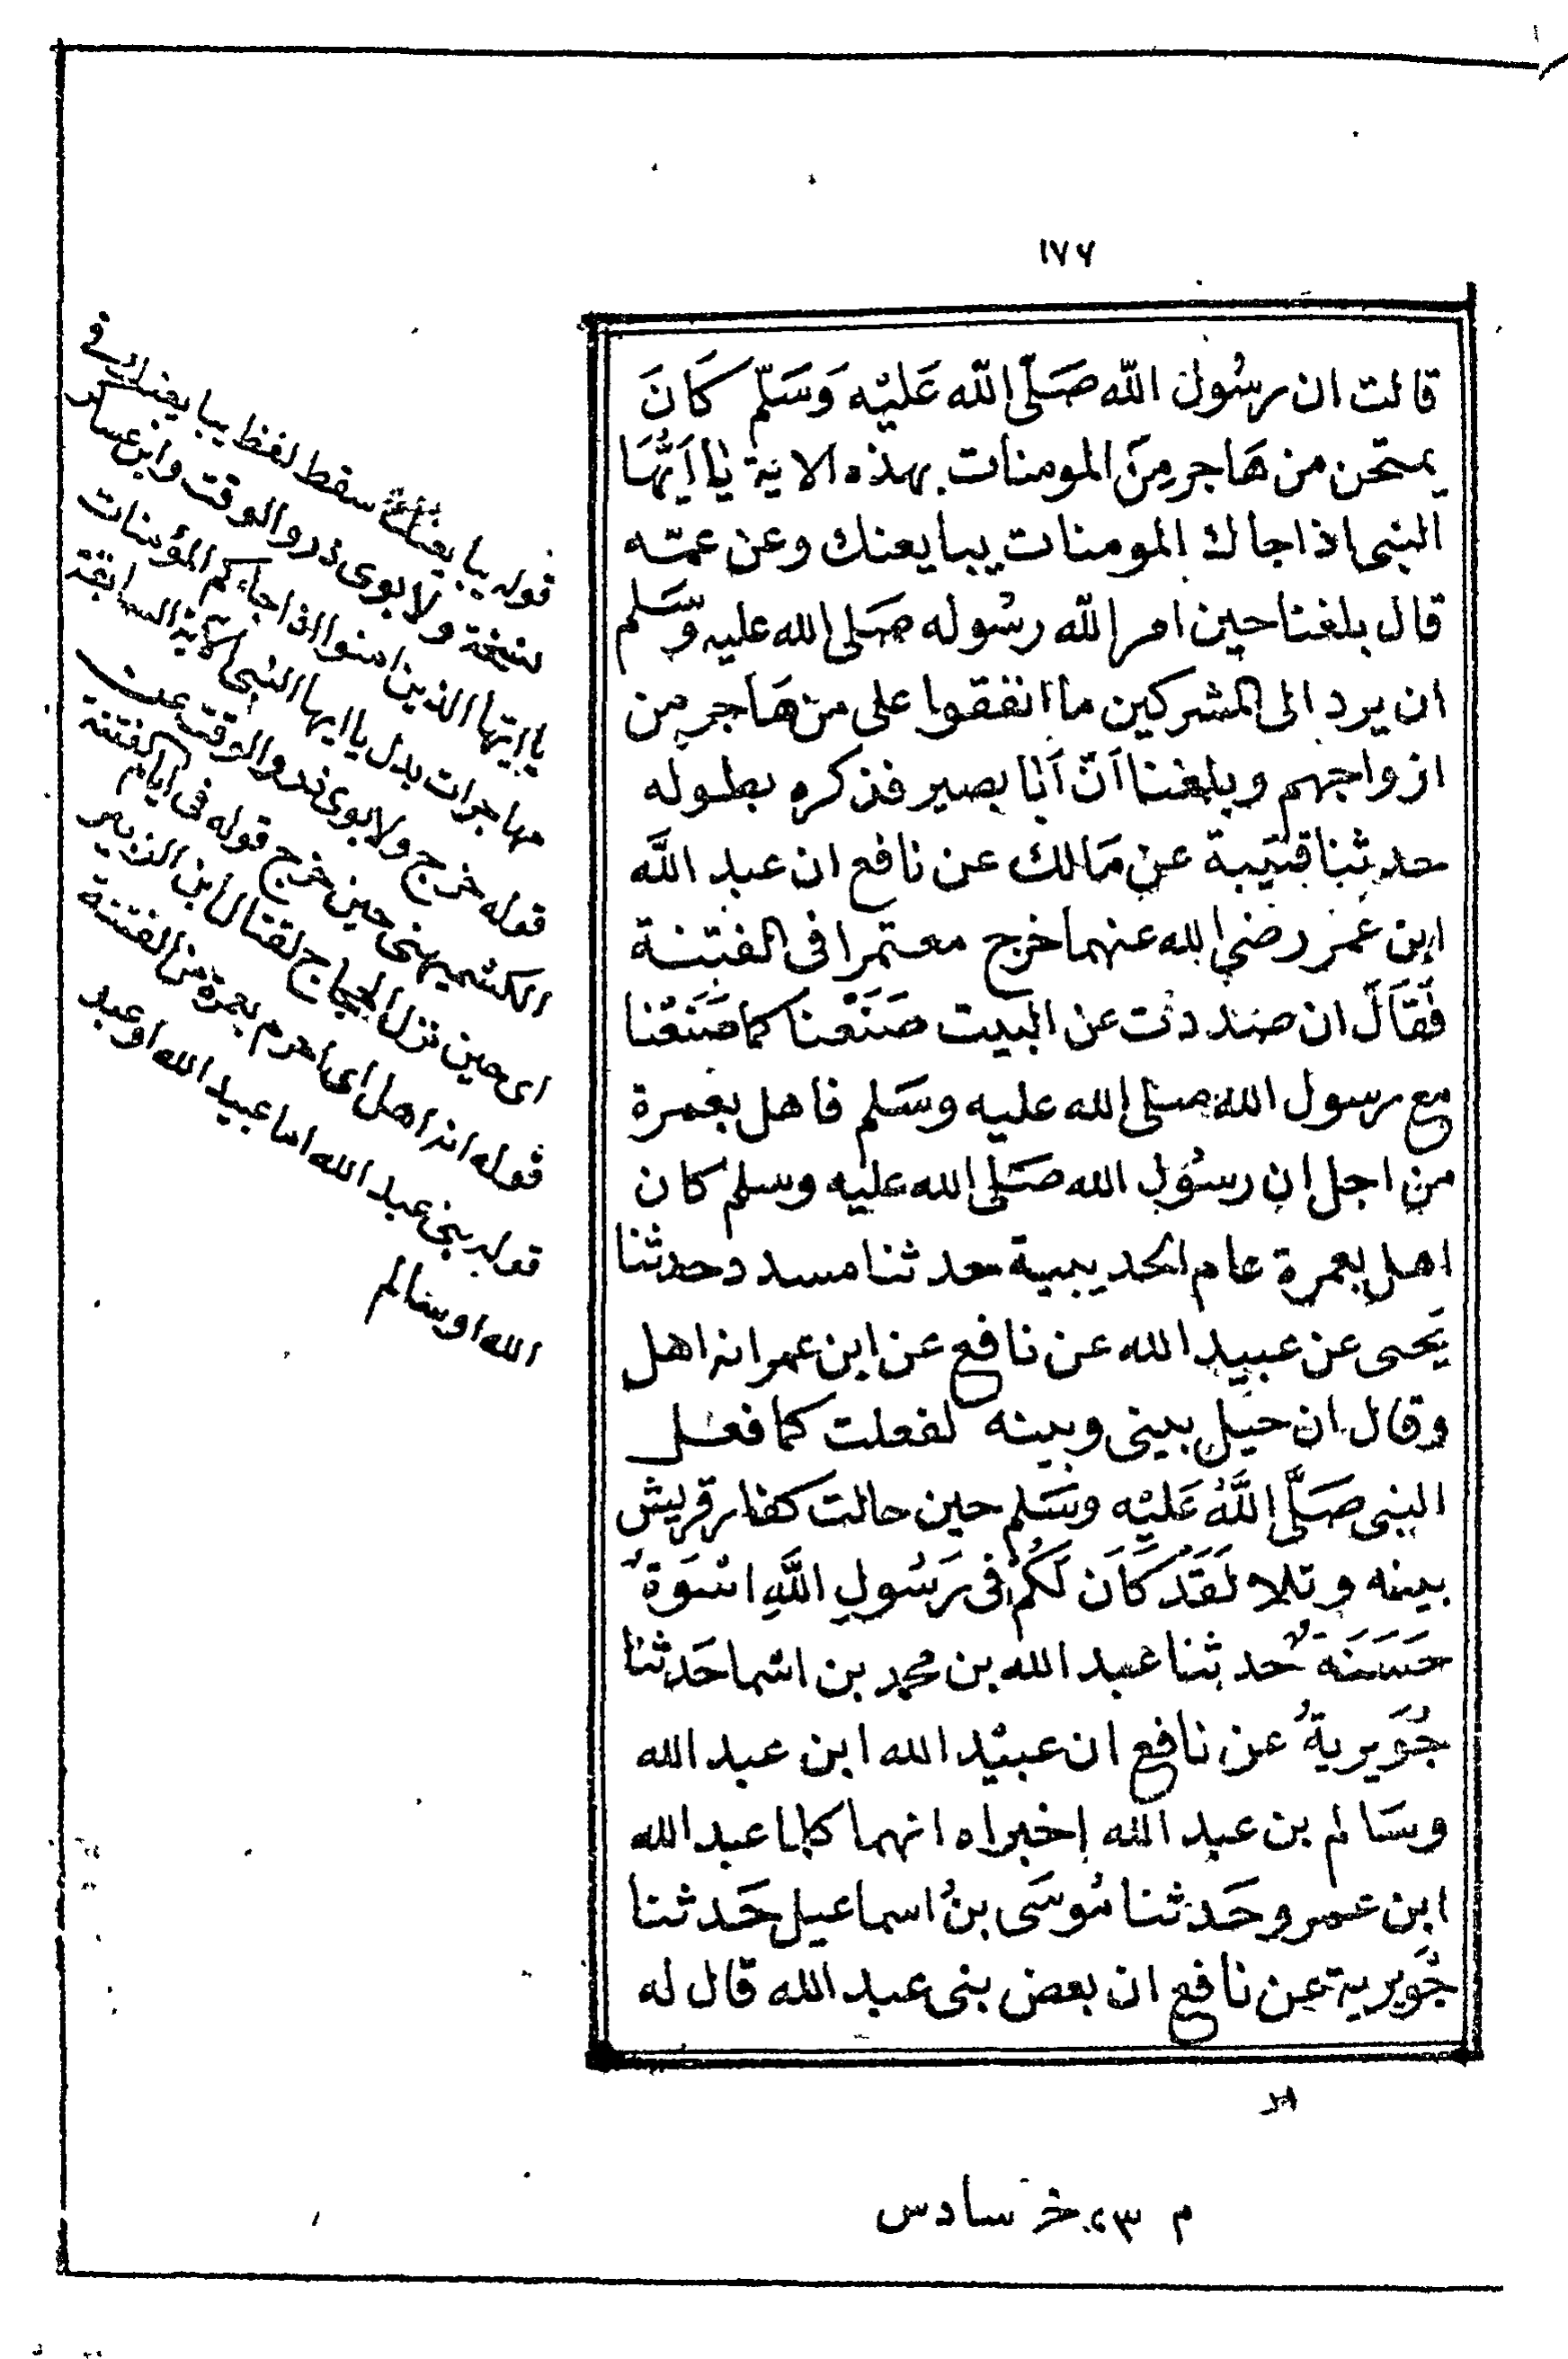 ١٧٦
قالت ان رسُول الله صَلّى الله عَليْه وَسَلّم كَانَ
يمتحن من هَاجر مِنَ المومنات بهذه الاية يٰا اَيُّهَا
النبى اذا جاك المومنات يبايعنك وعن عمّه
قال بلغنا حين امر الله رسُوله صَلى الله عليه وسَلم
ان يرد الى المشركين ما انفقوا على من هَاجر من
ازواجهم وبلغنا اَنّ اَبَا بصير فذكره بطوله
حدثنا قتيبة عن مَالك عن نافع ان عبد اللَّه
ابن عُمر رضي الله عنهما خرج معتمرا فى الفتنة
فَقَالَ ان صددت عن البيت صَنَعْنا كما صَنَعْنا
مع رسول الله صلى الله عليه وسَلم فاهل بعمرة
من اجل ان رسُول الله صَلى الله عليه وسلم كان
اهل بعمرة عام الحديبية حدثنا مسدد حدثنا
يَحيى عن عبيد الله عن نافع عن ابن عمر انه اهل
وقال ان حيل بينى وبينه لفعلت كما فعل
النبى صَلَّى اللَّهُ عَليْه وسَلم حين حالت كفار قريش
بينه وتلا لَقَدْ كَانَ لَكُمْ فى رَسُولِ اللَّهِ اسْوَةٌ
حَسَنَةٌ حدثنا عبد الله بن محمد بن اسْما حَدثنا
جُوَيريةُ عن نافع ان عبيْد الله ابن عبد الله
وسَالم بن عبد الله اخبراه انهما كلما عبد الله
ابن عمر وحَدثنا مُوسَى بنُ اسماعيل حَدثنا
جُوَيرية عن نافع ان بعض بنى عبد الله قال له
قوله يبايعنك سقط لفظ يبايعنك فى
نسخة ولابوى ذر والوقت وابن عساكر
يا ايها الذين امنوا اذا جاءكم المؤمنات
مهاجرات بدل يا ايها النبى الآية السابقة
قوله خرج ولابوى ذر والوقت عن
الكشميهنى حين خرج قوله فى ايام الفتنة
اى حين نزل الحجاج لقتال ابن الزبير
قوله انه اهل اى احرم بعمرة من الفتنة
قوله بنى عبد الله اما عبيد الله او عبد
الله او سالم
م ٢٣ خر سادس